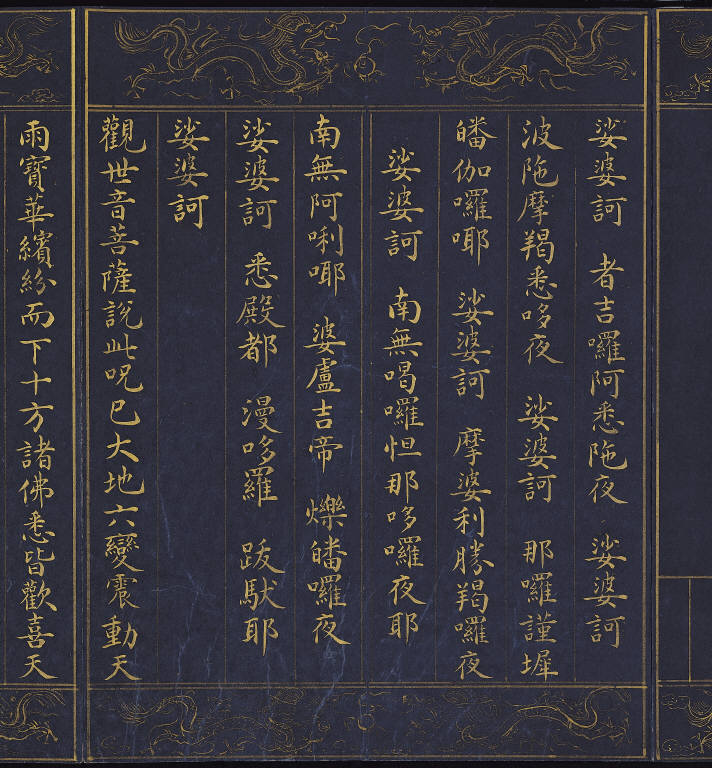 娑婆訶　者吉囉阿悉陁夜　娑婆訶
波陁摩羯悉哆夜　娑婆訶　那囉謹墀
皤伽囉㖿　娑婆訶　摩婆利勝羯囉夜
娑婆訶　南無喝囉怛那哆囉夜耶
南無阿唎㖿　婆盧吉帝　爍皤囉夜
娑婆訶　悉殿都　漫哆羅　跋馱耶
娑婆訶
觀世音菩薩說此呪已大地六變震動天
雨寶華繽紛而下十方諸佛悉皆歡喜天